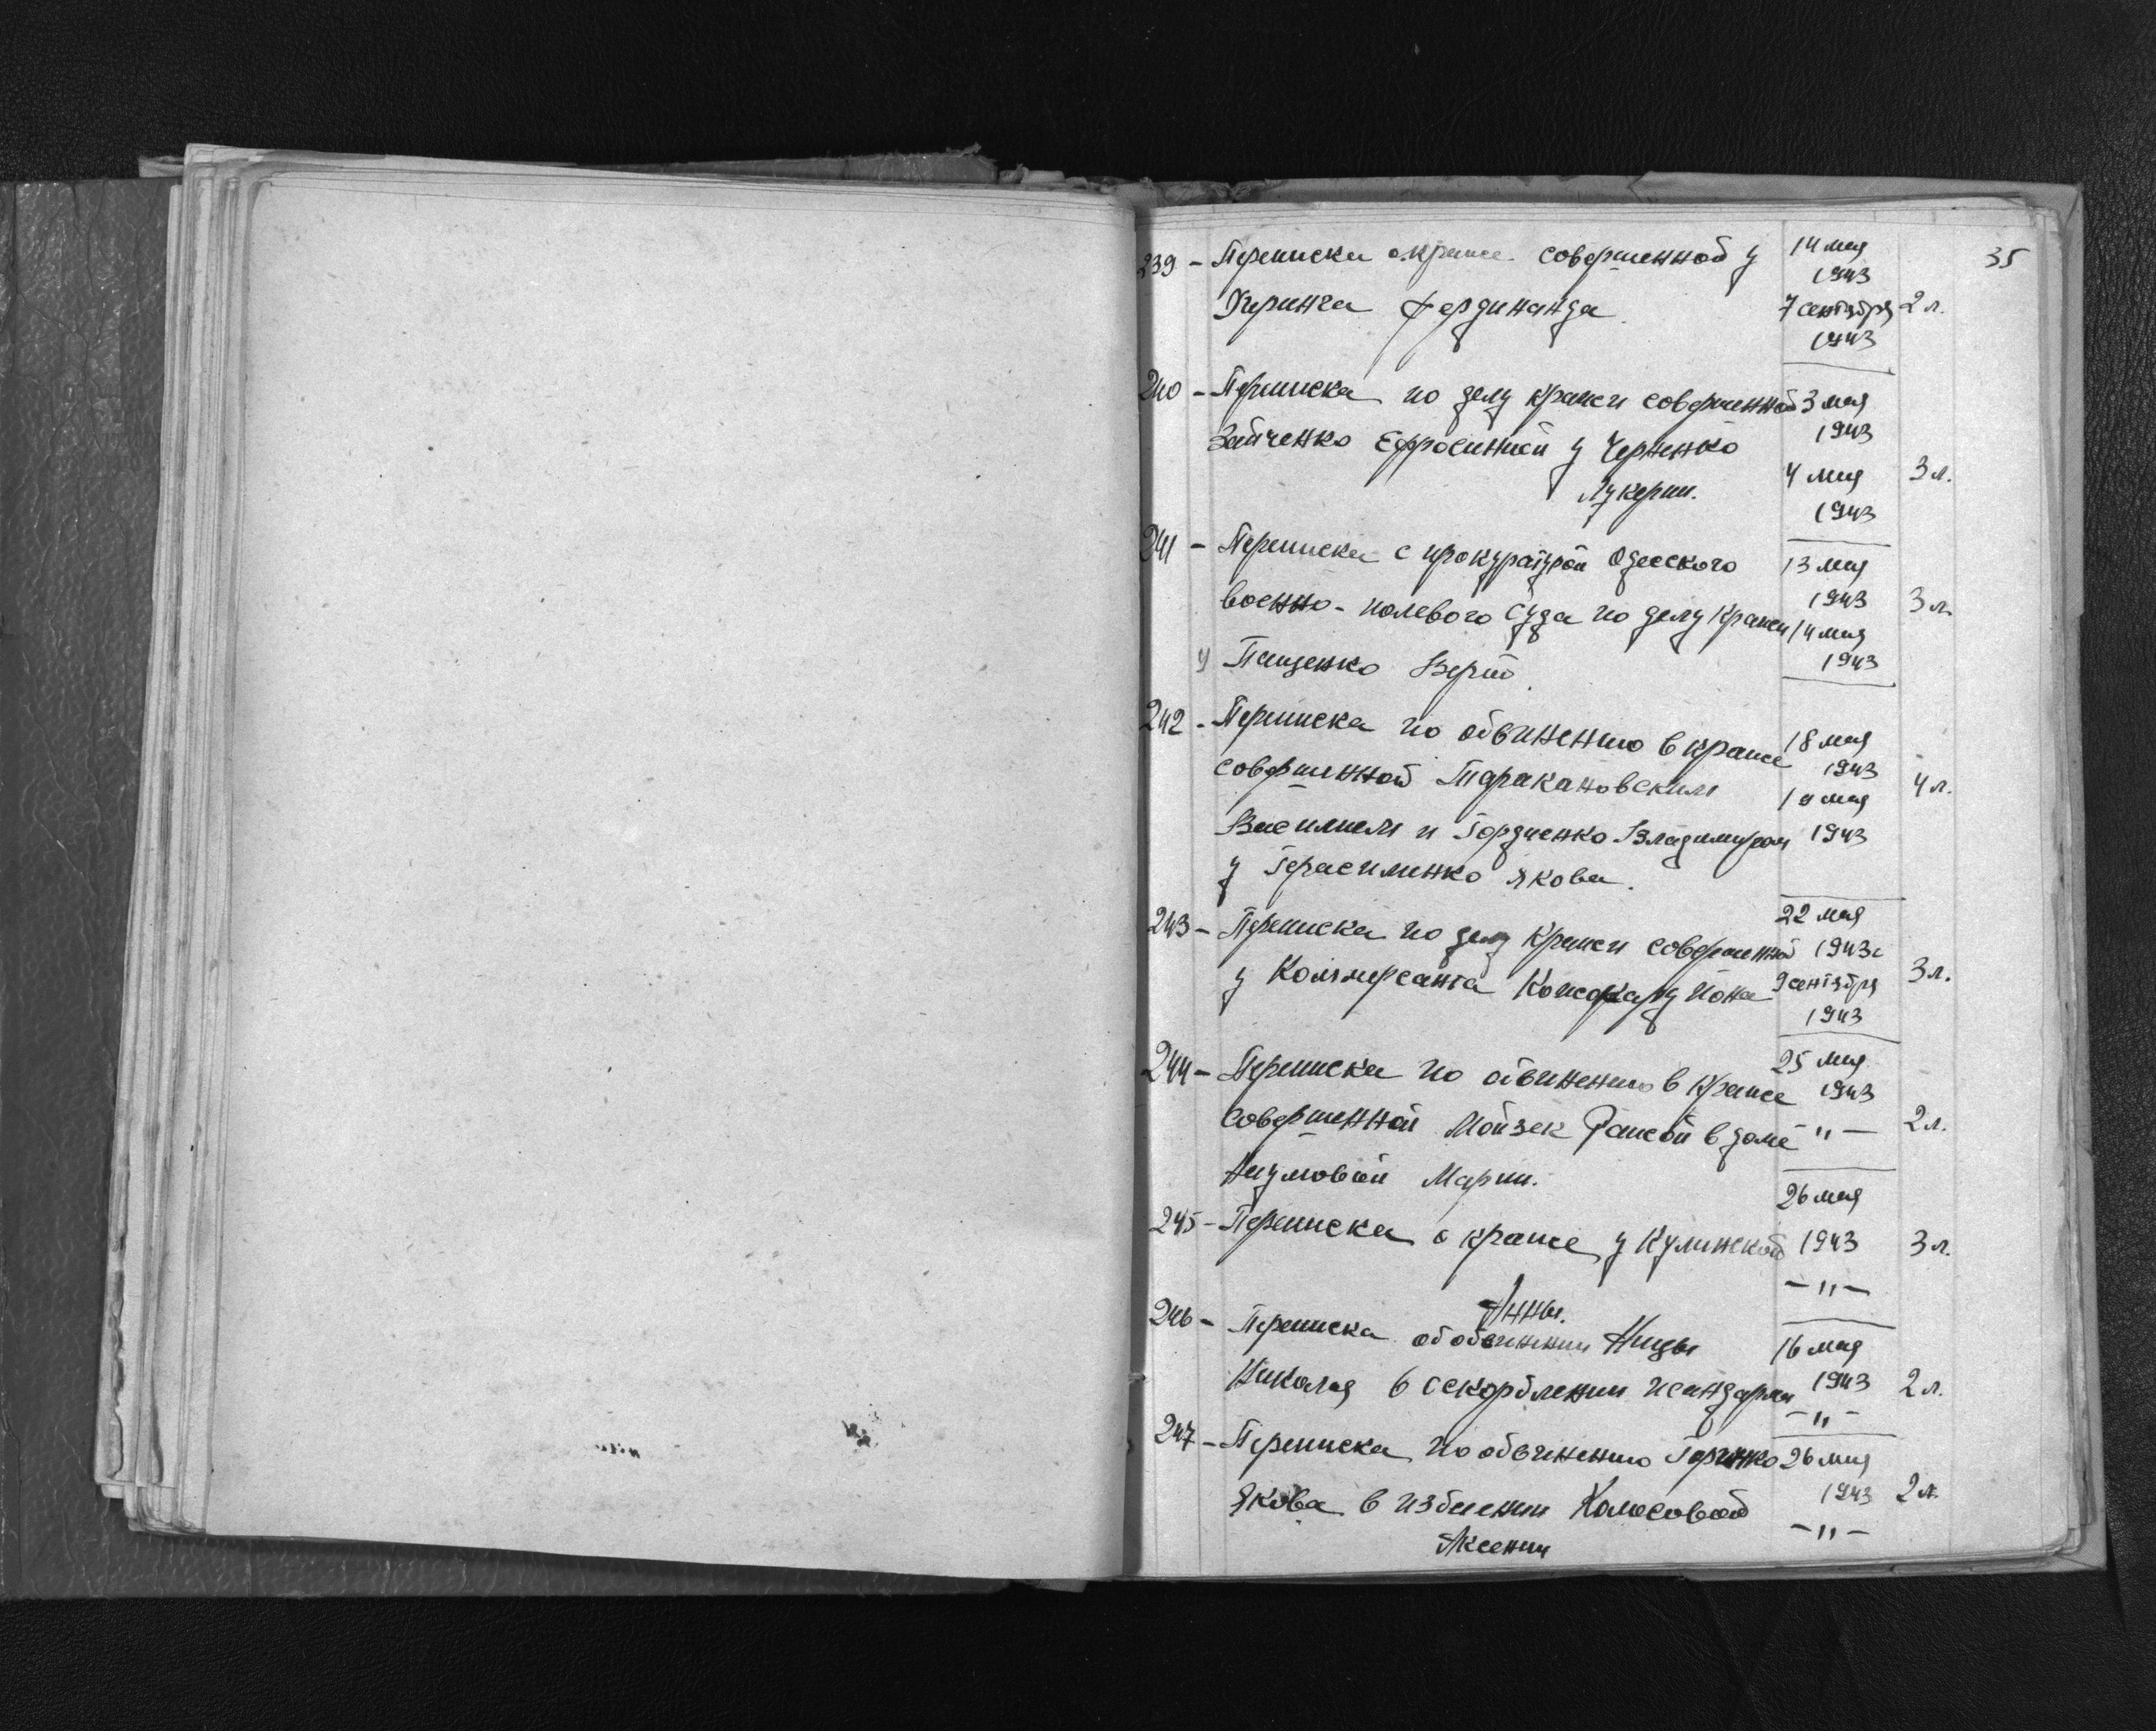 35
239 - Переписка о краже совершенной у 14 мая 1943
Геринга Фердинанда. 7 сентября 1943 2 л.
240 - Переписка по делу кражи совершенной 3 мая 1943
Зайченко Ефросинией у Черненко 4 мая 1943 3 л.
Лукерии.
241 - Переписка с прокуратурой Одесского 13 мая 1943
военно-полевого суда по делу кражи 14 мая 1943 3 л.
у Пащенко Веры.
242 - Переписка по обвинению в краже 18 мая 1943
совершенной Таракановским мая 4 л.
Василием и Гордиенко Владимиром 1943
у Герасименко Якова.
243 - Переписка по делу кражи совершенной 22 мая 1943г
у Коммерсанта Иона 9 сентября 1943 3 л.
244 - Переписка по обвинению в краже 25 мая 1943
совершенной Мойзек Раисой в доме " — 2 л.
Наумовой Марии.
245 - Переписка о краже у Кулинской 26 мая 1943 3 л.
Анны. — " —
246 - Переписка об обвинении Ницы 16 мая
Николая в оскорблении жандарма 1943 2 л.
— " —
247 - Переписка по обвинению 26 мая
Якова в избиении Колесовой 1943 2 л.
Аксении — " —